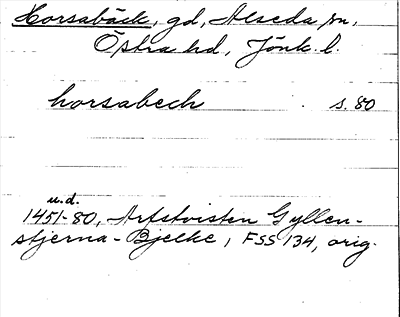 Horsabäck, gd, Alseda sn,
Östra hd, Jönk. l.
horsabech s. 80
u.d.
1451-80, Arfstvisten Gyllen-
stjerna - Bjelke, FSS 134, orig.